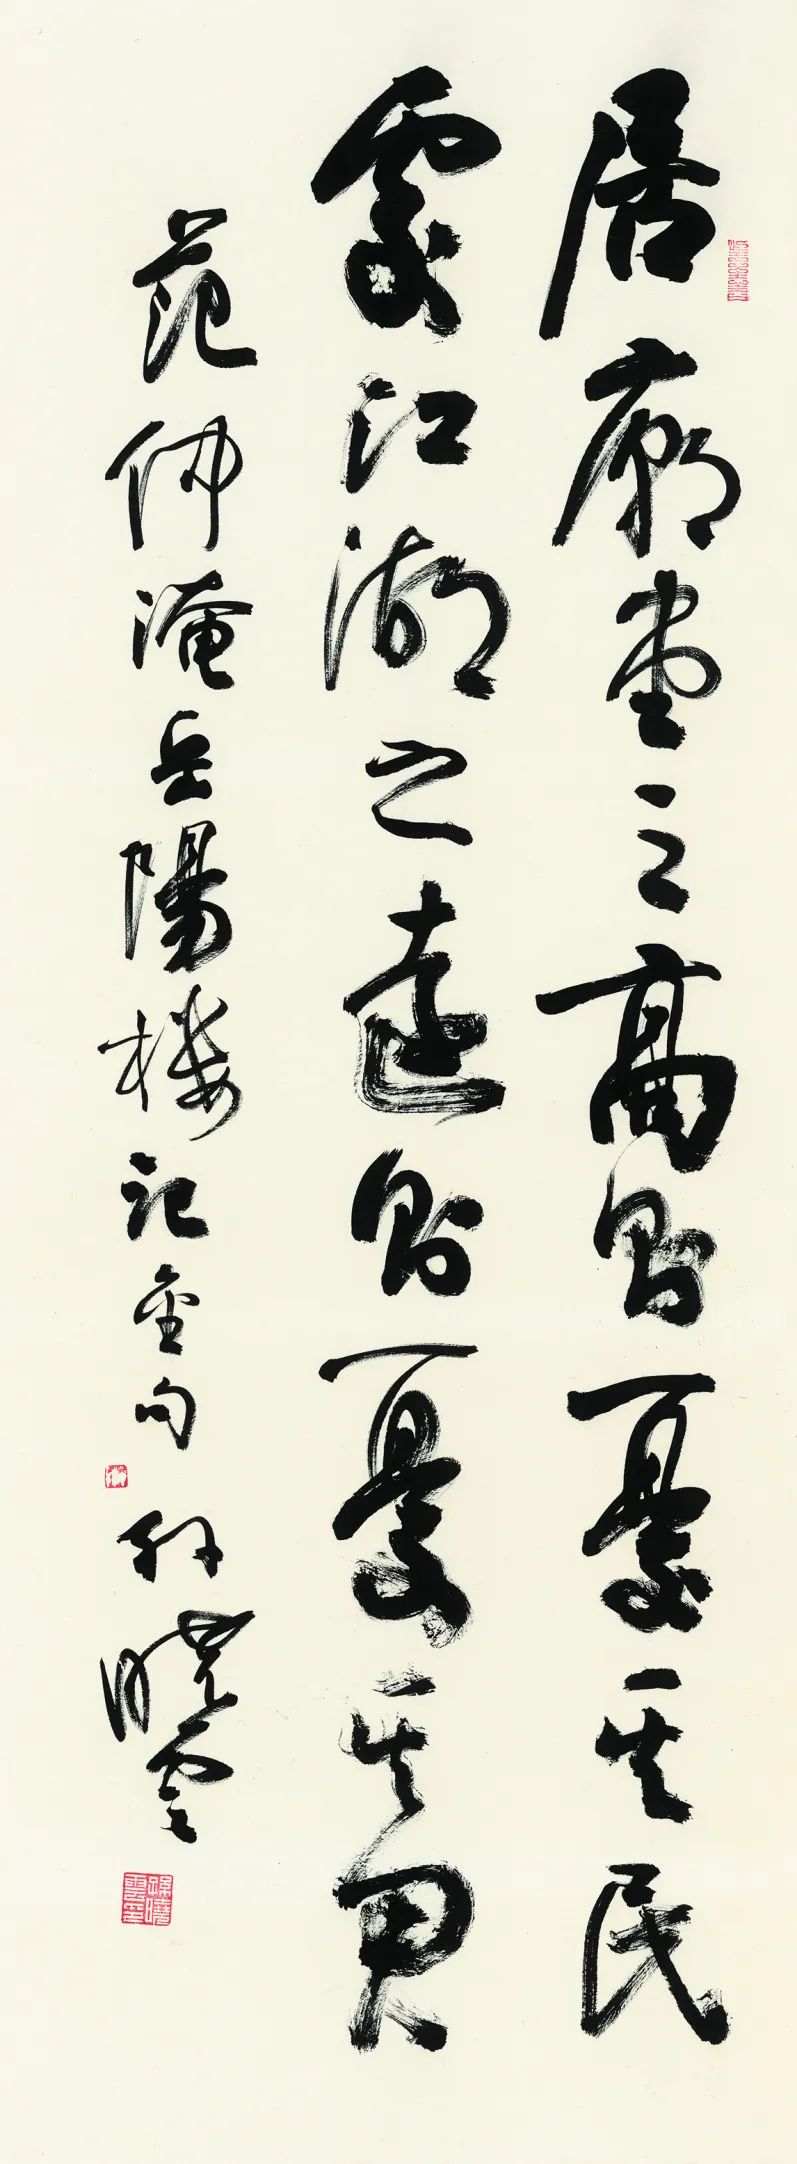 居廟堂之高則憂其民
處江湖之遠則憂其君
范仲淹岳陽樓記金句 孫曉雲
孫曉雲印